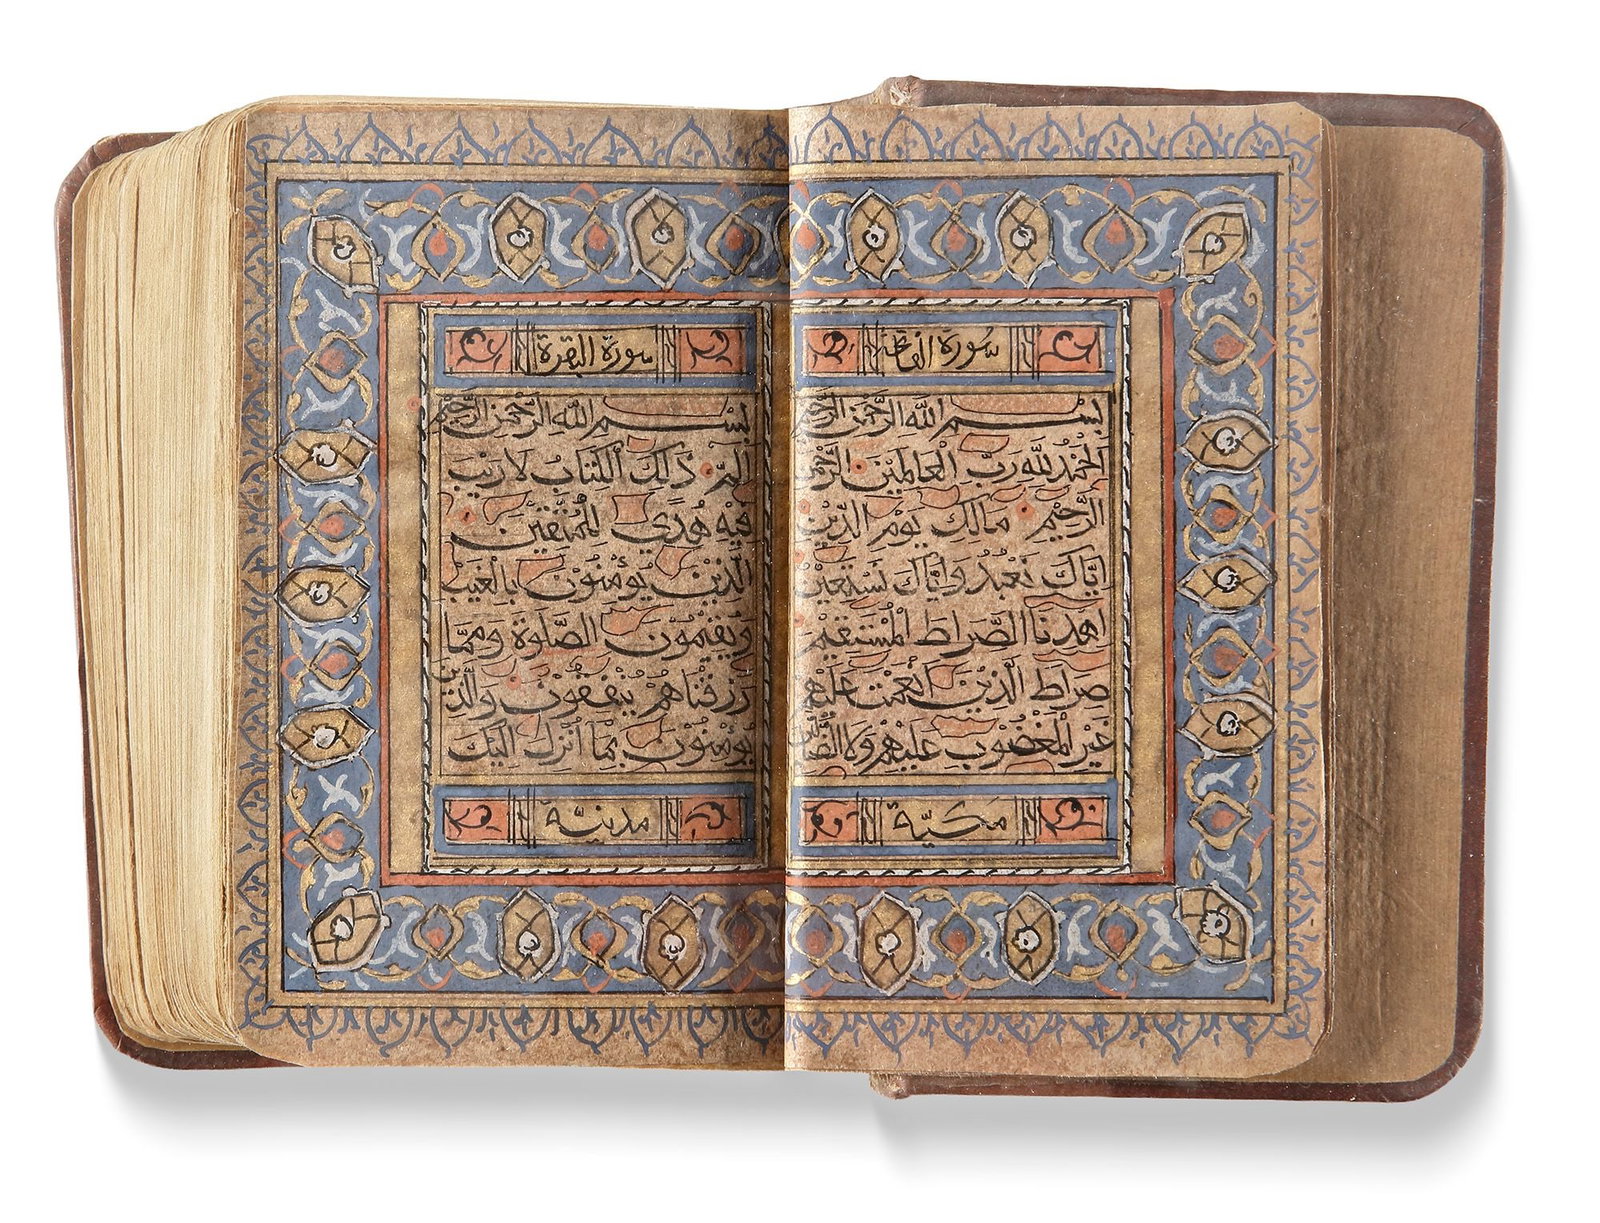 سورة الفاتحة
بسم الله الرحمن الرحيم
الحمد لله رب العالمين الرحمن
الرحيم مالك يوم الدين
اياك نعبد واياك نستعين
اهدنا الصراط المستقيم
صراط الذين أنعمت عليهم
غير المغضوب عليهم ولا الضالين
مكية
سورة البقرة
بسم الله الرحمن الرحيم
الم ذلك الكتاب لا ريب
فيه هدى للمتقين
الذين يؤمنون بالغيب
ويقيمون الصلوة ومما
رزقناهم ينفقون والذين
يؤمنون بما انزل اليك
مدنية